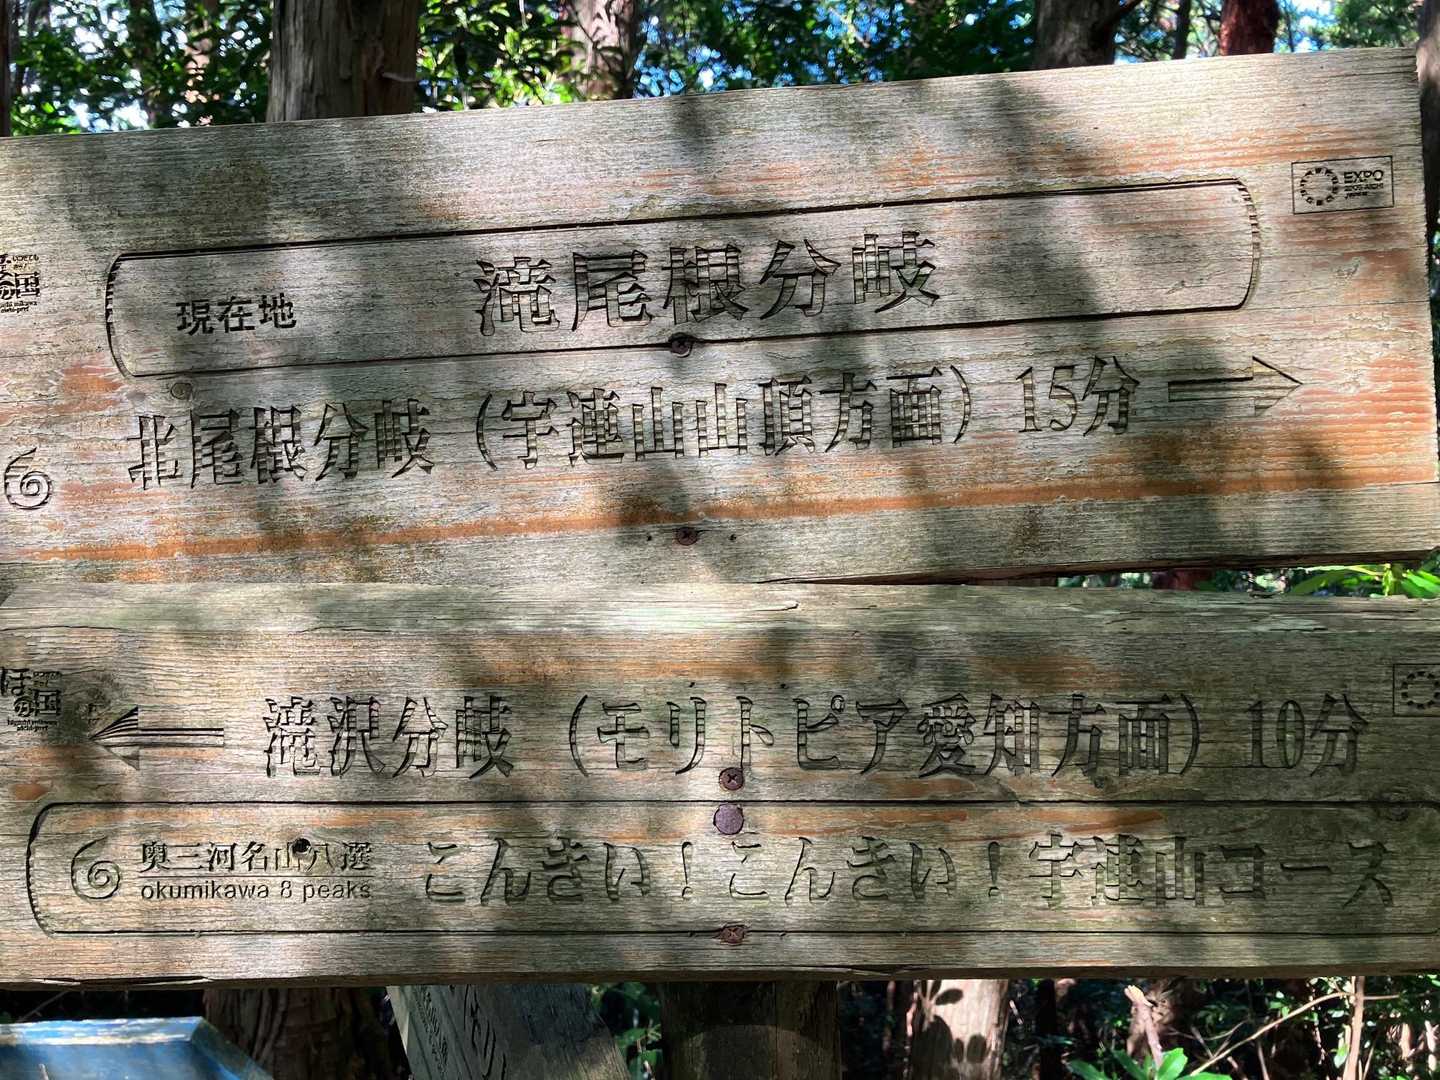 EXPO
2005 AICHI
現在地
滝尾根分岐
北尾根分岐（宇連山山頂方面）15分
ほの国
滝沢分岐（モリトピア愛知方面）10分
奥三河名山八選
okumikawa 8 peaks
こんきい！こんきい！宇連山コース